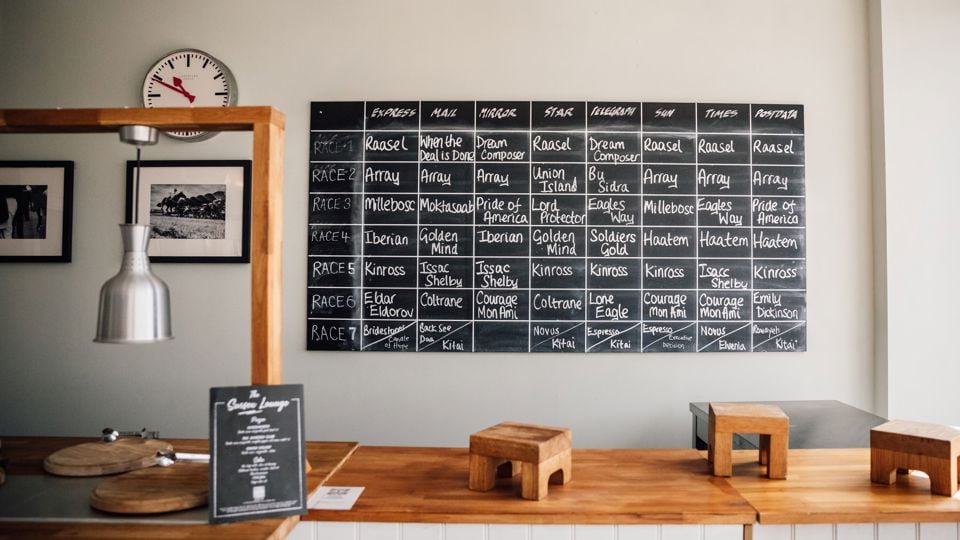 EXPRESS MAIL MIRROR STAR TELEGRAPH SUN TIMES POSTDATA
RACE 1 Raasel When the Deal is Done Dream Composer Raasel Dream Composer Raasel Raasel Raasel
RACE 2 Array Array Array Union Island Bu Sidra Array Array Array
RACE 3 Millebosc Moktasaab Pride of America Lord Protector Eagles Way Millebosc Eagles Way Pride of America
RACE 4 Iberian Golden Mind Iberian Golden Mind Soldiers Gold Haatem Haatem Haatem
RACE 5 Kinross Issac Shelby Issac Shelby Kinross Kinross Kinross Isacc Shelby Kinross
RACE 6 Eldar Eldorov Coltrane Courage Mon Ami Coltrane Lone Eagle Courage Mon Ami Courage Mon Ami Emily Dickinson
RACE 7 Bridestones Candle of Hope Back See Daa Kitai Novus Kitai Espresso Kitai Espresso Executive Decision Novus Elvenia Rowayeh Kitai
The
Sussex Lounge